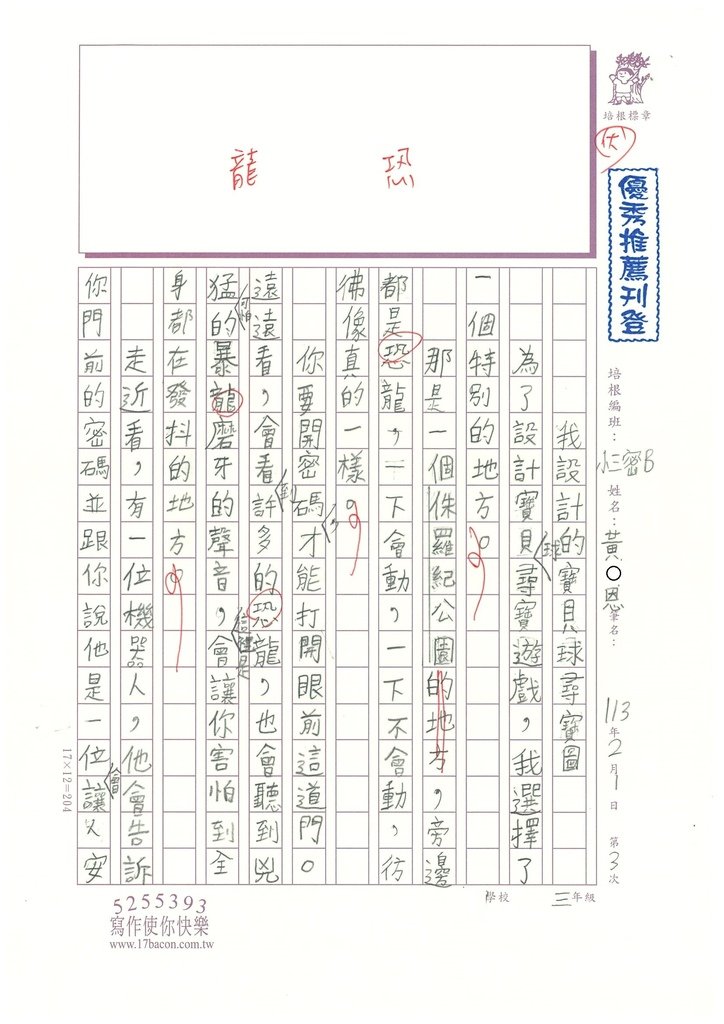 龍 恐
培根標章
伏
優秀推薦刊登
培根編班：小三密B 姓名：黃○恩 筆名： 113年2月1日 第3次
三年級 學校
我設計的寶貝球尋寶圖
為了設計寶貝尋寶遊戲，我選擇了
球
一個特別的地方。
那是一個侏羅紀公園的地方，旁邊
都是恐龍，一下會動，一下不會動，彷
彿像真的一樣。
你要開密碼才能打開眼前這道門。
遠遠看，會看許多的恐龍，也會聽到兇
到
猛的暴龍磨牙的聲音，會讓你害怕到全
可怕
這裡是
身都在發抖的地方。
走近看，有一位機器人，他會告訴
你門前的密碼並跟你說他是一位讓人安
會
17×12=204
5255393
寫作使你快樂
www.17bacon.com.tw